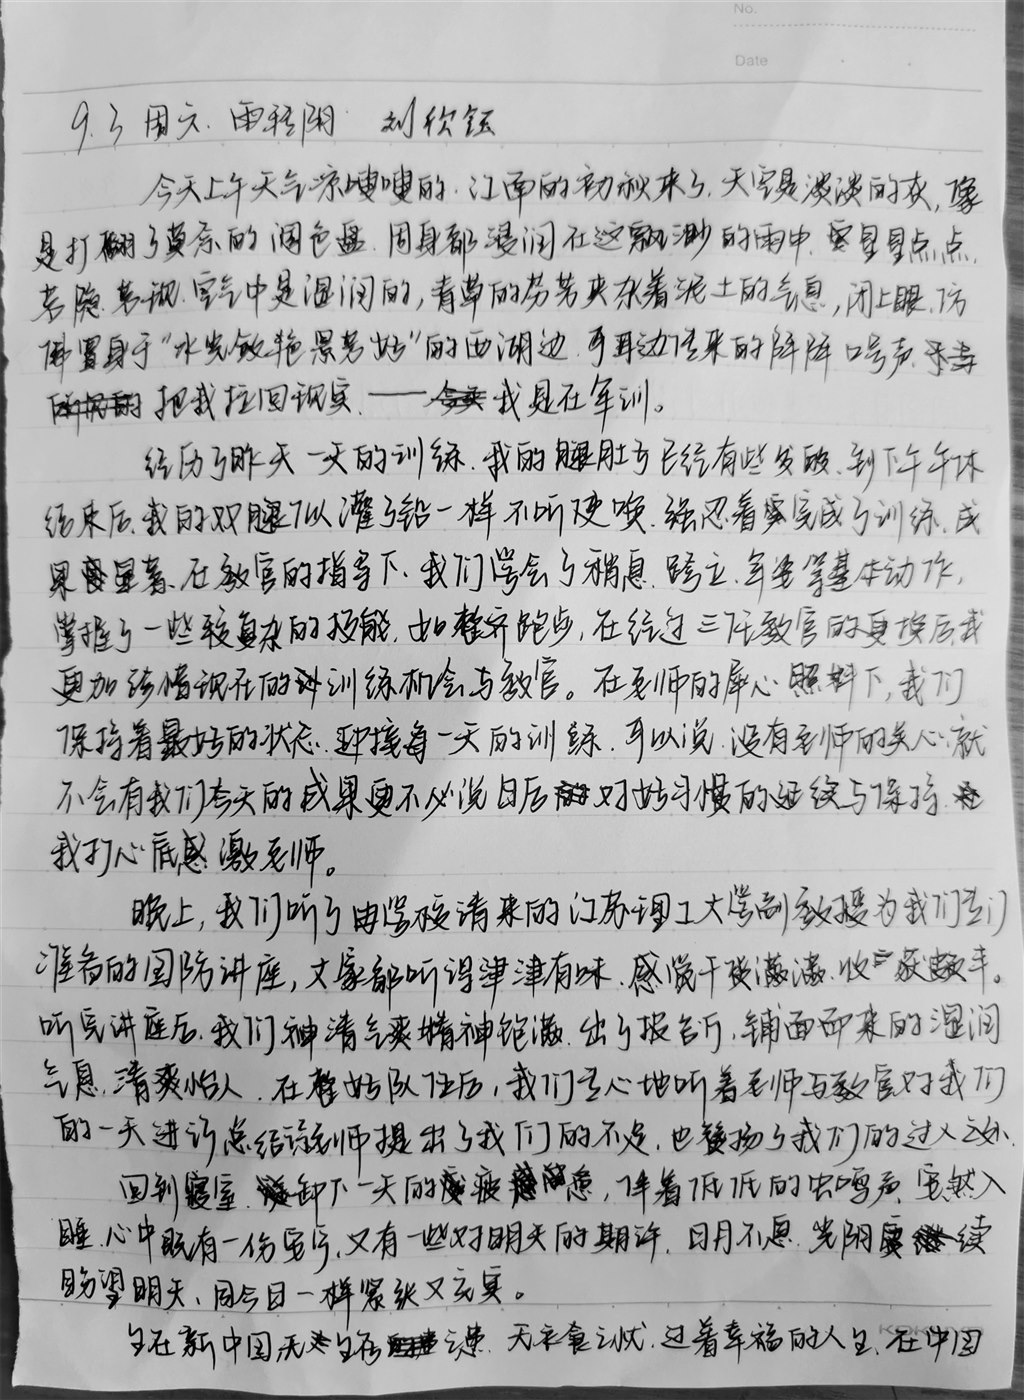 No.
Date
9.3 周六. 雨转阴 刘欣钰
今天上午天气凉嗖嗖的.江南的初秋来了,天空是淡淡的灰,像
是打翻了莫奈的调色盘.周身都浸润在这飘渺的雨中.星星点点,
若隐若现.空气中是湿润的,青草的芬芳夹杂着泥土的气息,闭上眼,仿
佛置身于“水光潋滟景若好”的西湖边.可耳边传来的阵阵口号声
把我拉回现实.——我是在军训。
经历了昨天一天的训练.我的腿肚子已经有些发酸.到下午午休
结束后.我的双腿似灌了铅一样不听使唤.强忍着完成了训练.成
果显著.在教官的指导下.我们学会了稍息.跨立.等基本动作,
掌握了一些较复杂的技能,如整齐跑步,在经过三任教官的更换后我
更加珍惜现在的训练机会与教官。在老师的犀心照料下,我们
保持着最好的状态.迎接每一天的训练.可以说.没有老师的关心就
不会有我们今天的成果更不必说日后对好习惯的延续与保持.
我打心底感激老师。
晚上,我们听了由学校请来的江苏理工大学副教授为我们专门
准备的国防讲座,大家都听得津津有味.感觉干货满满.收获颇丰。
听完讲座后.我们神清气爽精神饱满.出了报告厅,铺面而来的湿润
气息.清爽怡人.在整好队伍后,我们专心地听着老师与教官对我们
的一天进行总结老师提出了我们的不足,也赞扬了我们的过人之处.
回到寝室.卸下一天的疲惫,伴着低低的虫鸣声.安然入
睡.心中既有一份安宁.又有一些对明天的期许.日月不息.光阴续
盼望明天、同今日一样紧张又充实。
生在新中国无之患.无衣食之忧.过着幸福的人生.在中国
KOKUYO